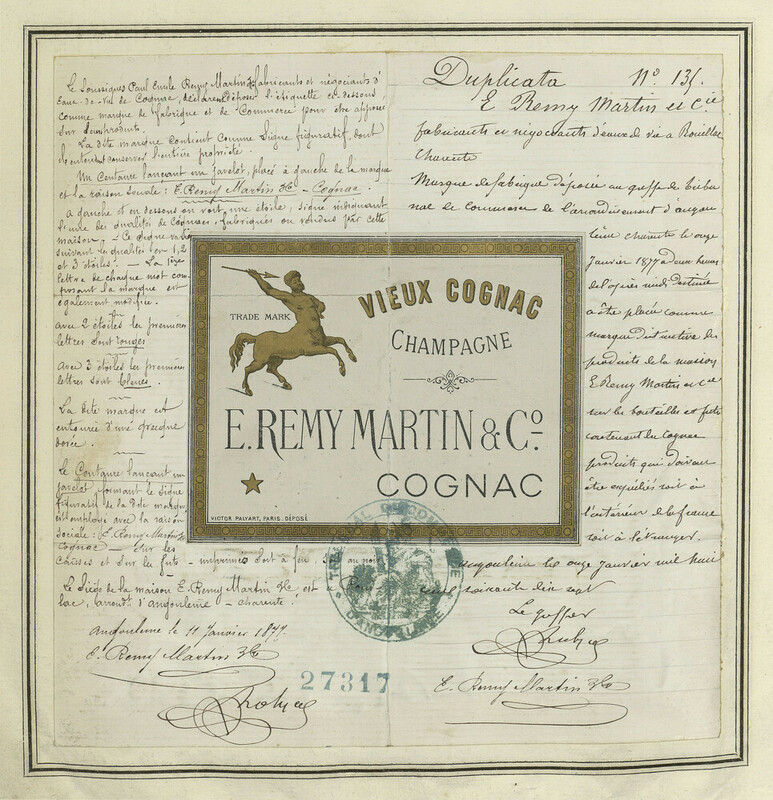 Le Soussigné Paul Emile Remy Martin & Co fabricants et négociants d'
Eaux-de-vie de Cognac, déclarent déposer l'étiquette ci-dessous
comme marque de fabrique et de Commerce pour être apposée
sur leurs produits.
La dite marque contient comme Signe figuratif, dont
ils entendent conserver l'entière propriété :
Un Centaure lançant un javelot, placé à gauche de la marque
et la raison sociale : E. Remy Martin & Co - Cognac.
a gauche et en dessous on voit, une étoile, signe indiquant
l'une des qualités de Cognacs, fabriqués ou vendus par cette
maison. - Ce signe varie
suivant les qualités en 1, 2
et 3 étoiles. - La 1ère
lettre de chaque mot com
posant la marque est
également modifiée.
avec 2 étoiles les premières
lettres sont rouges
avec 3 étoiles les premières
lettres sont bleues.
La dite marque est
entourée d'une grecque
dorée.
Le Centaure lançant un
javelot formant le signe
figuratif de la dite marque
est employé avec la raison
sociale : E. Remy Martin & Co
Cognac - sur les
caisses et sur les futs - imprimés soit à feu, au
Le Siège de la maison E. Remy Martin & Co est
lac, arrondt d'angoulême - charente.
Angoulême le 11 Janvier 1877.
E. Remy Martin & Co
Duplicata No 135.
E. Remy Martin et Cie
fabricants et négociants d'eaux de vie à Rouillac
Charente
Marque de fabrique déposée au greffe du tribu
nal de Commerce de l'arrondissement d'angou
lême charente le onze
Janvier 1877 à deux heures
de l'après midi destinée
à être placée comme
marque distinctive des
produits de la maison
E. Remy Martin et Cie
sur les bouteilles et futs
contenant les Cognacs
produits qui doivent
être expédiés soit à
l'intérieur de la france
soit à l'étranger.
angoulême le onze janvier mil huit
cent soixante dix sept
Le greffier
E. Remy Martin & Co
TRADE MARK
VIEUX COGNAC
CHAMPAGNE
E. REMY MARTIN & Co
COGNAC
VICTOR PALYART, PARIS. DÉPOSÉ
TRIBUNAL DE COMMERCE
D'ANGOULEME
27317